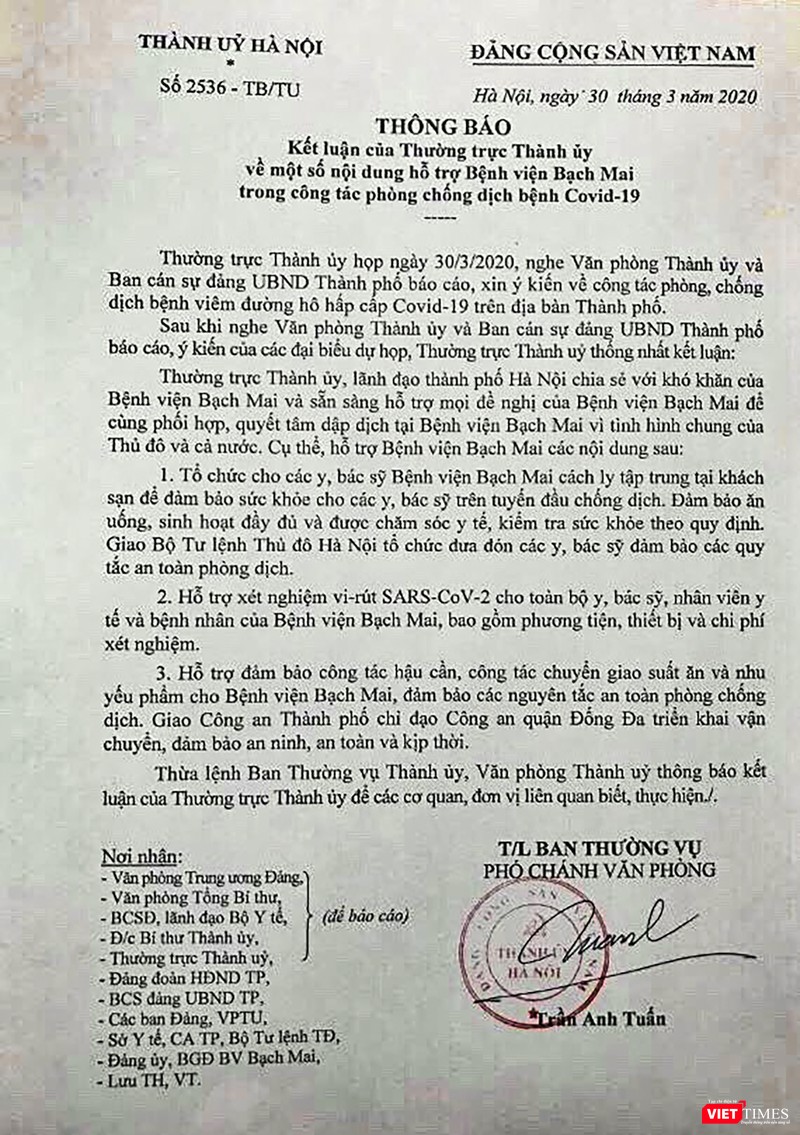 THÀNH UỶ HÀ NỘI
*
Số 2536 - TB/TU
ĐẢNG CỘNG SẢN VIỆT NAM
Hà Nội, ngày 30 tháng 3 năm 2020
THÔNG BÁO
Kết luận của Thường trực Thành ủy
về một số nội dung hỗ trợ Bệnh viện Bạch Mai
trong công tác phòng chống dịch bệnh Covid-19
-----
Thường trực Thành ủy họp ngày 30/3/2020, nghe Văn phòng Thành ủy và
Ban cán sự đảng UBND Thành phố báo cáo, xin ý kiến về công tác phòng, chống
dịch bệnh viêm đường hô hấp cấp Covid-19 trên địa bàn Thành phố.
Sau khi nghe Văn phòng Thành ủy và Ban cán sự đảng UBND Thành phố
báo cáo, ý kiến của các đại biểu dự họp, Thường trực Thành uỷ thống nhất kết luận:
Thường trực Thành ủy, lãnh đạo thành phố Hà Nội chia sẻ với khó khăn của
Bệnh viện Bạch Mai và sẵn sàng hỗ trợ mọi đề nghị của Bệnh viện Bạch Mai để
cùng phối hợp, quyết tâm dập dịch tại Bệnh viện Bạch Mai vì tình hình chung của
Thủ đô và cả nước. Cụ thể, hỗ trợ Bệnh viện Bạch Mai các nội dung sau:
1. Tổ chức cho các y, bác sỹ Bệnh viện Bạch Mai cách ly tập trung tại khách
sạn để đảm bảo sức khỏe cho các y, bác sỹ trên tuyến đầu chống dịch. Đảm bảo ăn
uống, sinh hoạt đầy đủ và được chăm sóc y tế, kiểm tra sức khỏe theo quy định.
Giao Bộ Tư lệnh Thủ đô Hà Nội tổ chức đưa đón các y, bác sỹ đảm bảo các quy
tắc an toàn phòng dịch.
2. Hỗ trợ xét nghiệm vi-rút SARS-CoV-2 cho toàn bộ y, bác sỹ, nhân viên y
tế và bệnh nhân của Bệnh viện Bạch Mai, bao gồm phương tiện, thiết bị và chi phí
xét nghiệm.
3. Hỗ trợ đảm bảo công tác hậu cần, công tác chuyển giao suất ăn và nhu
yếu phẩm cho Bệnh viện Bạch Mai, đảm bảo các nguyên tắc an toàn phòng chống
dịch. Giao Công an Thành phố chỉ đạo Công an quận Đống Đa triển khai vận
chuyển, đảm bảo an ninh, an toàn và kịp thời.
Thừa lệnh Ban Thường vụ Thành ủy, Văn phòng Thành uỷ thông báo kết
luận của Thường trực Thành ủy để các cơ quan, đơn vị liên quan biết, thực hiện./.
Nơi nhận:
- Văn phòng Trung ương Đảng,
- Văn phòng Tổng Bí thư,
- BCSĐ, lãnh đạo Bộ Y tế,
- Đ/c Bí thư Thành ủy,
- Thường trực Thành uỷ,
(để báo cáo)
- Đảng đoàn HĐND TP,
- BCS đảng UBND TP,
- Các ban Đảng, VPTU,
- Sở Y tế, CA TP, Bộ Tư lệnh TĐ,
- Đảng ủy, BGĐ BV Bạch Mai,
- Lưu TH, VT.
T/L BAN THƯỜNG VỤ
PHÓ CHÁNH VĂN PHÒNG
ĐẢNG CỘNG SẢN VIỆT NAM
THÀNH ỦY
HÀ NỘI
Trần Anh Tuấn
VIETTIMES